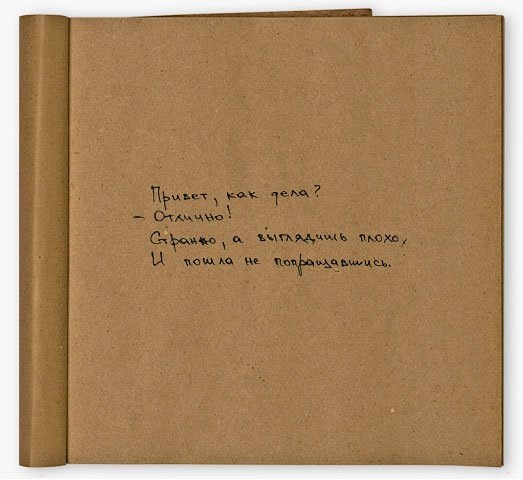 Привет, как дела?
- Отлично!
Странно, а выглядишь плохо,
И пошла не попращавшись.